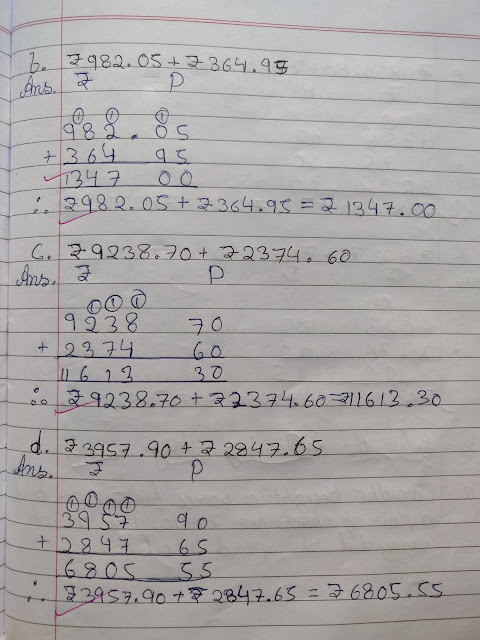 b. ₹982.05 + ₹364.95
Ans. ₹ P
① ① ①
982.05
+ 364 95
1347 00
∴ ₹982.05 + ₹364.95 = ₹1347.00
c. ₹9238.70 + ₹2374.60
Ans. ₹ P
① ① ①
9238 70
+ 2374 60
11613 30
∴ ₹9238.70 + ₹2374.60=₹11613.30
d. ₹3957.90 + ₹2847.65
Ans. ₹ P
① ① ① ①
3957 90
+ 2847 65
6805 55
∴ ₹3957.90 + ₹2847.65 = ₹6805.55